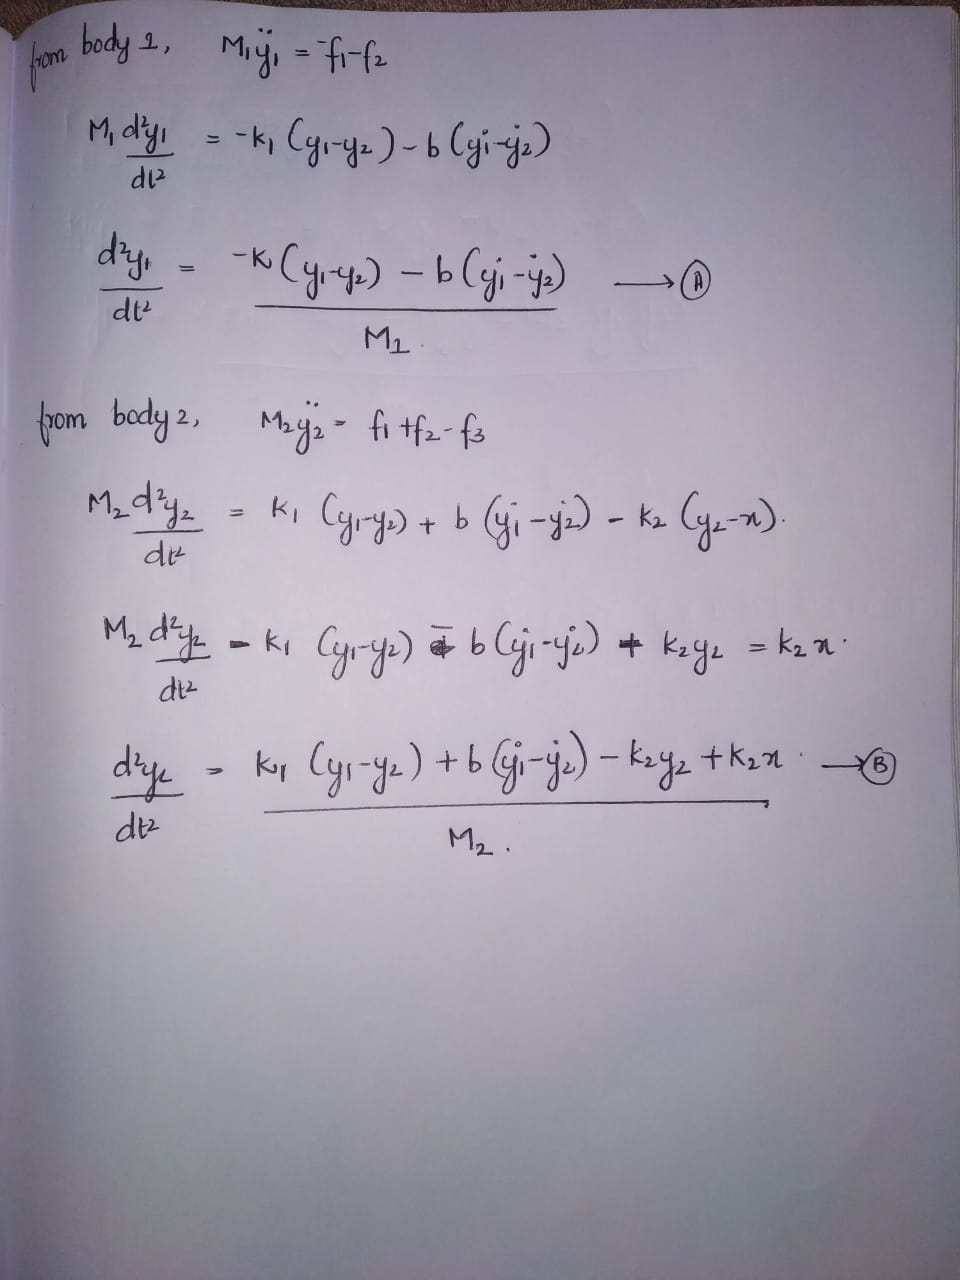 from body 1, M₁ÿ₁ = -f₁-f₂
M₁ d²y₁/dt² = -k₁ (y₁-y₂) - b (ẏ₁-ẏ₂)
d²y₁/dt² = (-k (y₁-y₂) - b (ẏ₁-ẏ₂))/M₁ → Ⓐ
from body 2, M₂ÿ₂ = f₁+f₂-f₃
M₂ d²y₂/dt² = k₁ (y₁-y₂) + b (ẏ₁-ẏ₂) - k₂ (y₂-x).
M₂ d²y₂/dt² - k₁ (y₁-y₂) - b (ẏ₁-ẏ₂) + k₂y₂ = k₂x.
d²y₂/dt² = (k₁ (y₁-y₂) + b (ẏ₁-ẏ₂) - k₂y₂ + k₂x)/M₂. → Ⓑ